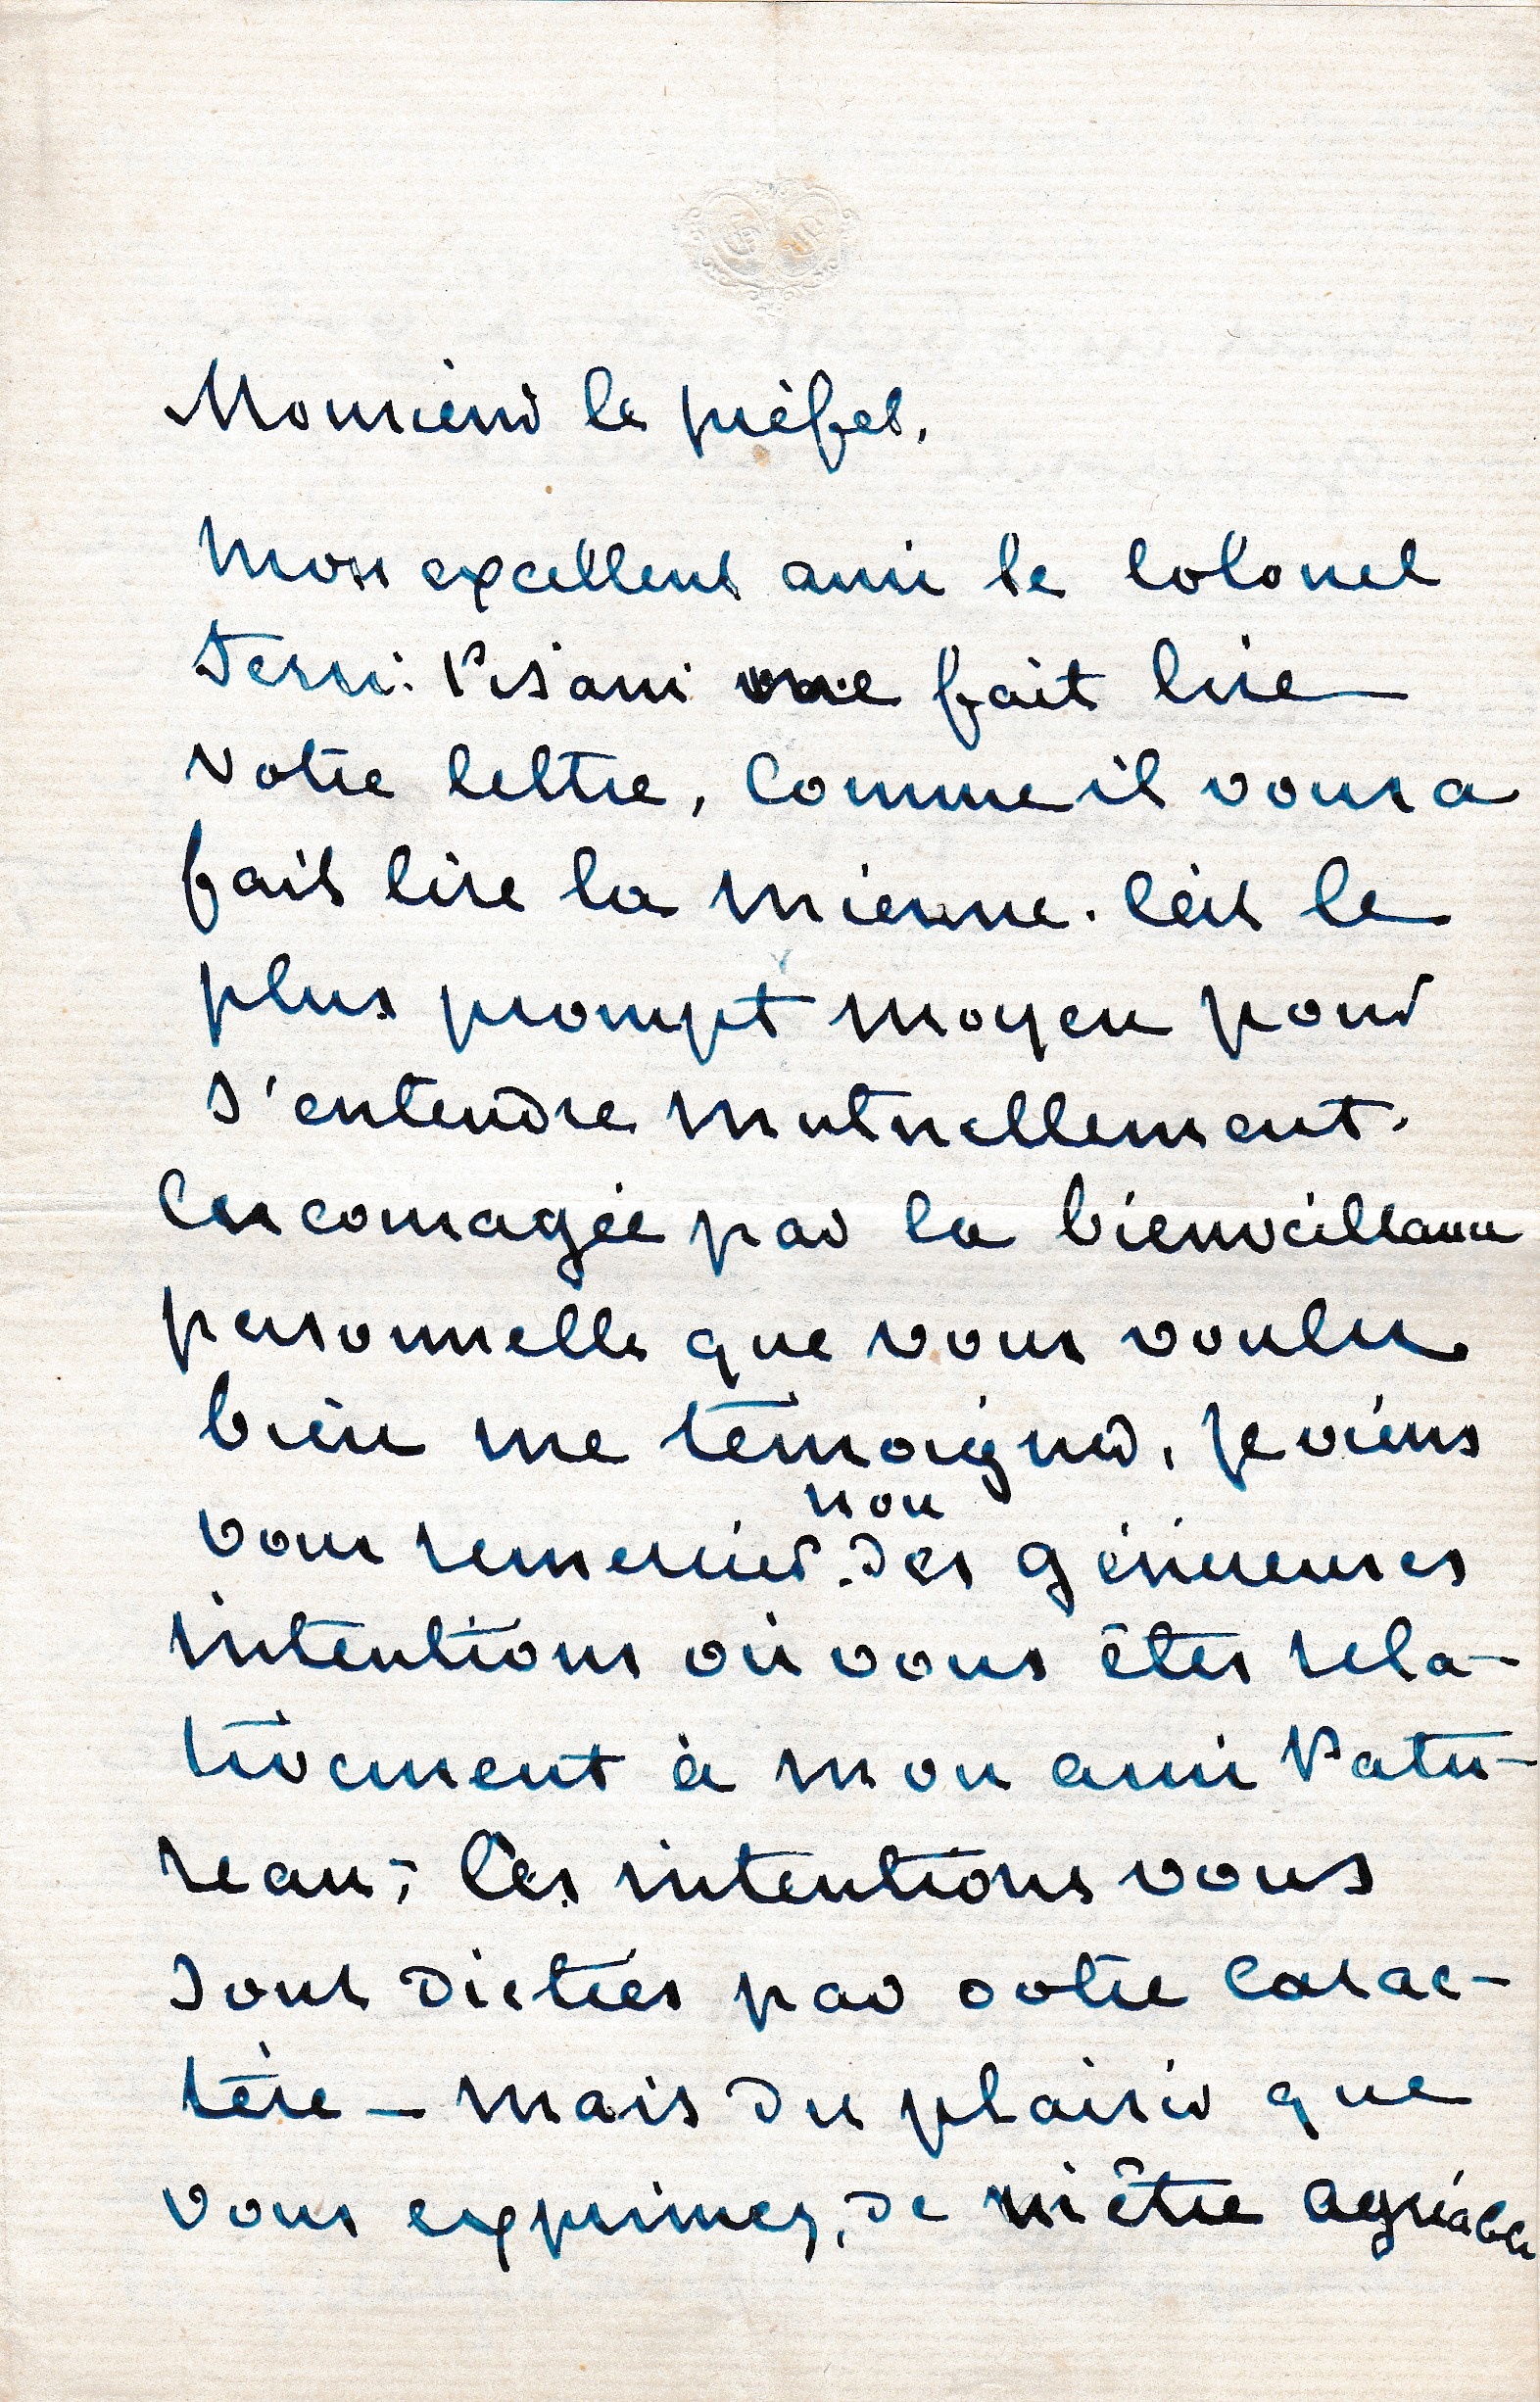 Monsieur le préfet,
Mon excellent ami le Colonel
Ferri-Pisani me fait lire
votre lettre, comme il vous a
fait lire la mienne. C'est le
plus prompt moyen pour
s'entendre mutuellement.
Encouragée par la bienveillance
personnelle que vous voulez
bien me témoigner, je viens
vous remercier non des généreuses
intentions où vous êtes rela-
tivement à mon ami Patu-
reau; Ces intentions vous
sont dictées par votre carac-
tère - mais du plaisir que
vous exprimez, de m'être agréable